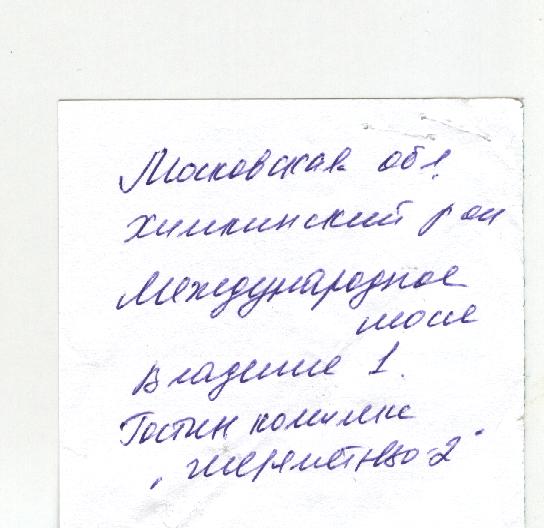 Московская обл.
Химкинский рои
Международное
шоссе
Владение 1.
Гостин комплекс
"Шереметьево-2"